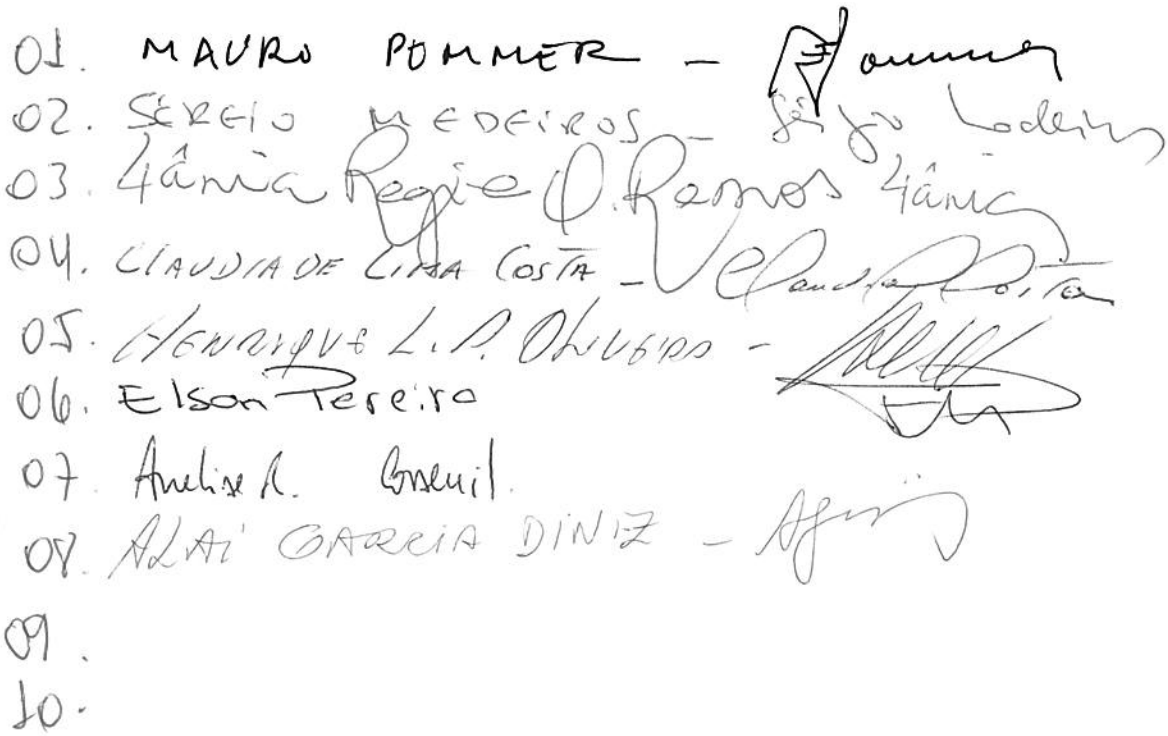 01. MAURO POMMER - Pommer
02. SÉRGIO MEDEIROS - Sérgio Medeiros
03. Tânia Regina O. Ramos Tânia
04. CLAUDIA DE LIMA COSTA - Claudia Costa
05. HENRIQUE L.P. OLIVEIRA -
06. Elson Pereira
07. Anelise R. Corseuil.
08. ALAI GARCIA DINIZ -
09.
10.